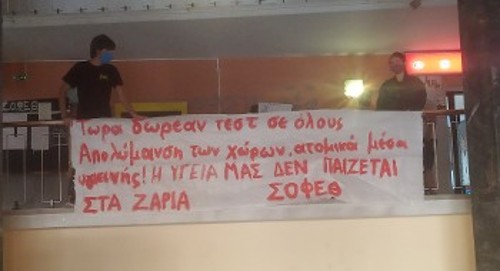 ΣΟΦΕΘ
Τώρα δωρεάν τεστ σε όλους
Απολύμανση των χώρων, ατομικά μέσα
υγιεινής! Η ΥΓΕΙΑ ΜΑΣ ΔΕΝ ΠΑΙΖΕΤΑΙ
ΣΤΑ ΖΑΡΙΑ ΣΟΦΕΘ